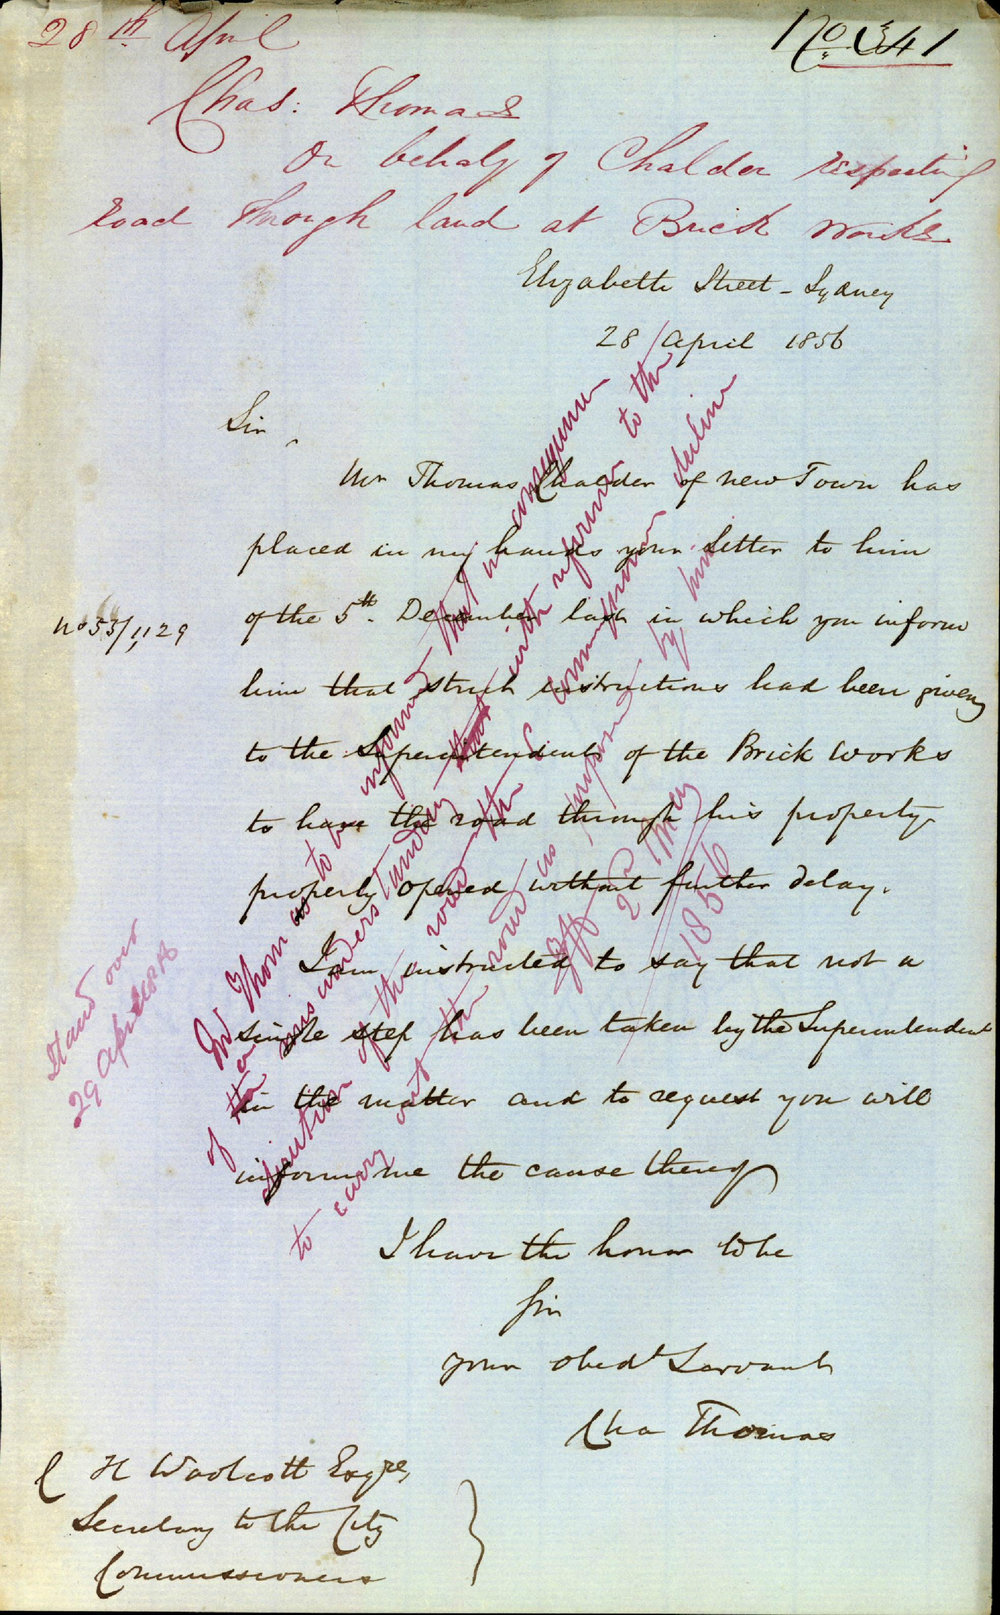 28th April
No 341
Chas: Thomas
On behalf of Chalder respecting
road through land at Brick Works
Elizabeth Street - Sydney
28 April 1856
Sir,
Mr Thomas Chalder of New Town has
placed in my hands your letter to him
of the 5th. December last in which you inform
No 55/1129
him that strict instructions had been given
to the Superintendent of the Brick Works
to have the road through his property
properly opened without further delay.
I am instructed to say that not a
single step has been taken by the Superintendent
in the matter and to request you will
inform me the cause thereof
I have the honor to be
Sir
your obedt Servant
Cha Thomas
C H Woolcott Esqre,
Secretary to the City
Commissioners
Stand over
29 April 1856
Mr Thomas to be informed that in consequence
of a misunderstanding with reference to the
direction of the road the Commissioners decline
to carry out the road as proposed by him
2 May
1856